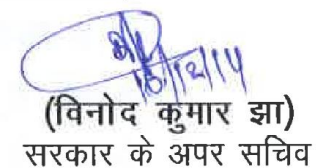 10/12/14
(विनोद कुमार झा)
सरकार के अपर सचिव